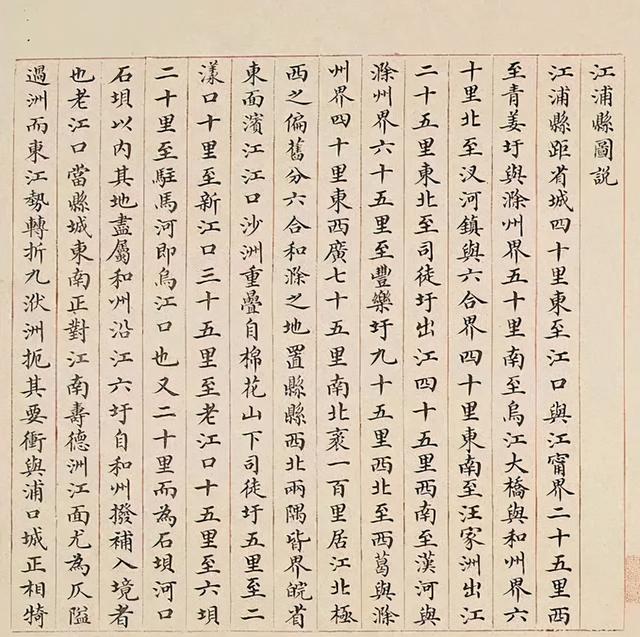 江浦縣圖説
江浦縣距省城四十里東至江口與江甯界二十五里西
至青姜圩與滁州界五十里南至烏江大橋與和州界六
十里北至汊河鎮與六合界四十里東南至汪家洲出江
二十五里東北至司徒圩出江四十五里西南至漢河與
滁州界六十五里至豐樂圩九十五里西北至西葛與滁
州界四十里東西廣七十五里南北袤一百里居江北極
西之偏舊分六合和滁之地置縣縣西北兩隅皆界皖省
東面濱江江口沙洲重疊自棉花山下司徒圩五里至二
漾口十里至新江口三十五里至老江口十五里至六壩
二十里至駐馬河即烏江口也又二十里而為石壩河口
石壩以内其地盡屬和州沿江六圩自和州撥補入境者
也老江口當縣城東南正對江南壽德洲江面尤為仄隘
過洲而東江勢轉折九洑洲扼其要衝與浦口城正相犄